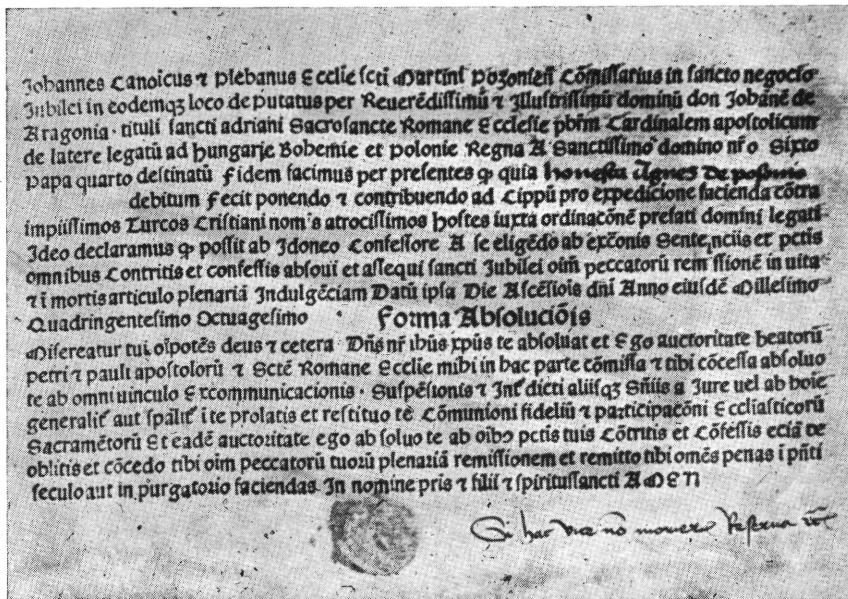 Johannes Canoicus ⁊ Plebanus Ecclie scti Martini Posoniesñ Cõmissarius in sancto negocio
Jubilei in eodemqꝫ loco deputatus per Reuerẽdissimũ ⁊ Jllustrissimũ dominũ don Johãnẽ de
Aragonia · tituli sancti adriani Sacrosancte Romane Ecclesie pbr̃m Cardinalem apostolicum
de latere legatũ ad hungarie Bohemie et Polonie Regna A Sanctissimo domino nr̃o Sixto
Papa quarto destinatũ fidem facimus per presentes ꝙ quia honesta Agnes de posonio
debitum fecit ponendo ⁊ contribuendo ad Cippũ pro expedicione facienda cõtra
impiissimos Turcos Cristiani nom's atrocissimos hostes iuxta ordinacõnẽ prefati domini legati
Jdeo declaramus ꝙ possit ab Jdoneo Confessore A se eligẽdo ab exc̃onis Sentenciis et pctis
omnibus Contritis et confessis absoui et assequi sancti Jubilei oim̃ peccatorũ rem ssionẽ in uita
⁊ ĩ mortis articulo plenariã Jndulgẽciam Datũ ipsa Die Ascẽsiois dñi Anno eiusdẽ Millesimo
Quadringentesimo Octuagesimo Forma Absoluciõis
Misereatur tui oĩpotẽs deus ⁊ cetera Dñs nr̃ ihũs xp̃us te absoluat et Ego auctoritate beatorũ
petri ⁊ pauli apostolorũ ⁊ Sctẽ Romane Ecclie mihi in hac parte cõmissa ⁊ tibi cõcessa absoluo
te ab omni uinculo Excommunicacionis · Suspẽsionis ⁊ Jnt̃dicti aliisqꝫ Sñiis a Jure uel ab hoĩe
generalit̃ aut spãlit̃ ĩ te prolatis et restituo te Cõmunioni fideliũ ⁊ participacõni Eccliasticorũ
Sacramẽtorũ Et eadẽ auctoritate ego ab soluo te ab oĩbꝰ pctis tuis Cõtritis et Cõfessis eciã de
oblitis et cõcedo tibi oim̃ peccatorũ tuorũ plenariã remissionem et remitto tibi omẽs penas ĩ pñti
seculo aut in purgatorio faciendas Jn nomine pris ⁊ filii ⁊ spiritussancti AMEN
Si hac vice nõ